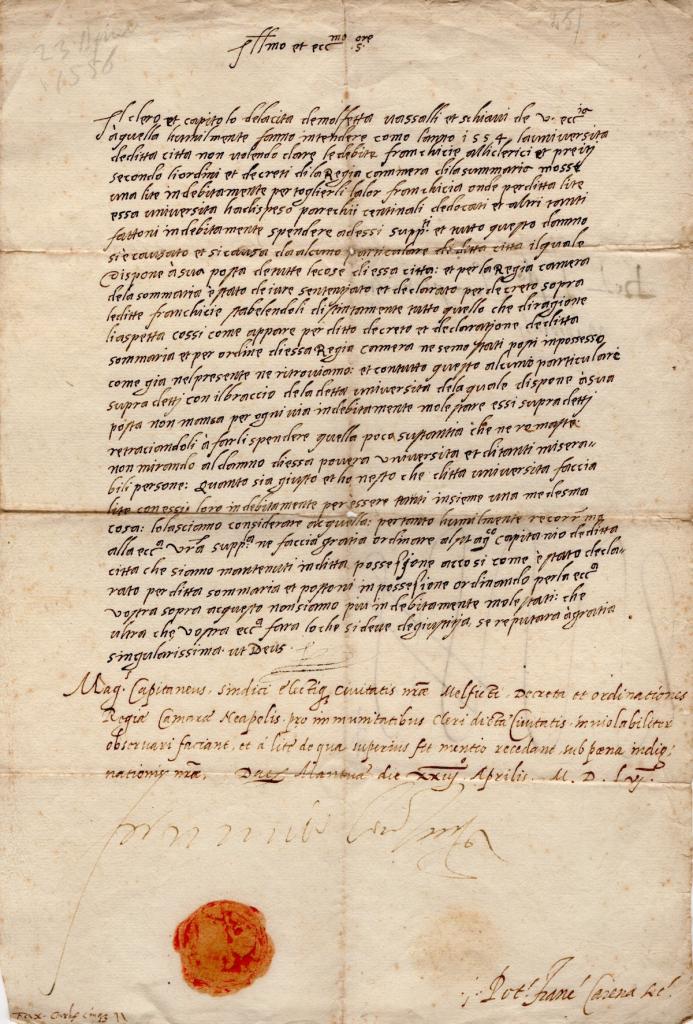 23 Aprile
1556
Ill.mo et ecc.mo s.ore
Il clero et capitolo dela cita de molfetta vassalli et schiavi de v. ecc.ia
à quella humilmente fanno intendere como l'anno 1554, la università
de ditta citta non volendo dare le debite franchicie alli clerici et previti
secondo li ordini et decreti di la Regia cammera di la summaria mosse
una lite indebitamente per toglierli la lor franchicia onde per ditta lite
essa università ha dispeso parechii centinali de docati et altri tanti
fattoni indebitamente spendere ad essi supp.ti et tutto questo damno
si è causato et si causa da alcuno particulare di ditta citta il quale
Dispone à sua posta de tutte le cose di essa citta: et per la Regia camera
dela sommaria è stato de iure sentenziato et declarato per decreto sopra
le ditte franchicie stabelendoli distintamente tutto quello che di ragione
li aspetta cossi come appare per ditto decreto et declaratione de ditta
sommaria et per ordine di essa Regia camera ne semo stati posti in possesso
come gia nel presente ne ritroviamo: et con tutto questo alcuno particulare
supra detti con il braccio dela detta università dela quale dispone à sua
posta non manca per ogni via indebitamente molestare essi supra detti
retraciandoli à farli spendere quella poca sustantia che ne remaste
non mirando al damno di essa povera università et di tanti misera-
bili persone: Quanto sia giusto et honesto che ditta università faccia
lite con essi loro indebitamente per essere tanti insieme una medesma
cosa: lo lasciamo considerare à quella: per tanto humilmente
alla ecc.a v.ra supp.no ne faccia gratia ordinare al mag.co Capitanio de ditta
citta che siamo mantenuti in ditta possessione accosi come è stato decla-
rato per ditta sommaria et postoni in possessione ordinando per la ecc.a
vostra sopra acquesto non siamo piu indebitamente molestati: che
ultra che vostra ecc.a fara lo che si deve de giustitia, se reputara à gratia
singularissima. ut Deus.
Mag. Capitaneus, sindici electiq; Civitatis nræ Melficti, Decreta et ordinationes
Regiæ Cameræ Neapolis pro immunitatibus Cleri dictæ Civitatis inviolabiliter
observari faciant, et à lite de qua superius fit mentio recedant sub pœna indig-
nationis nræ. Dat. Mantuæ die xxiij.o Aprilis. M. D. Lvj.